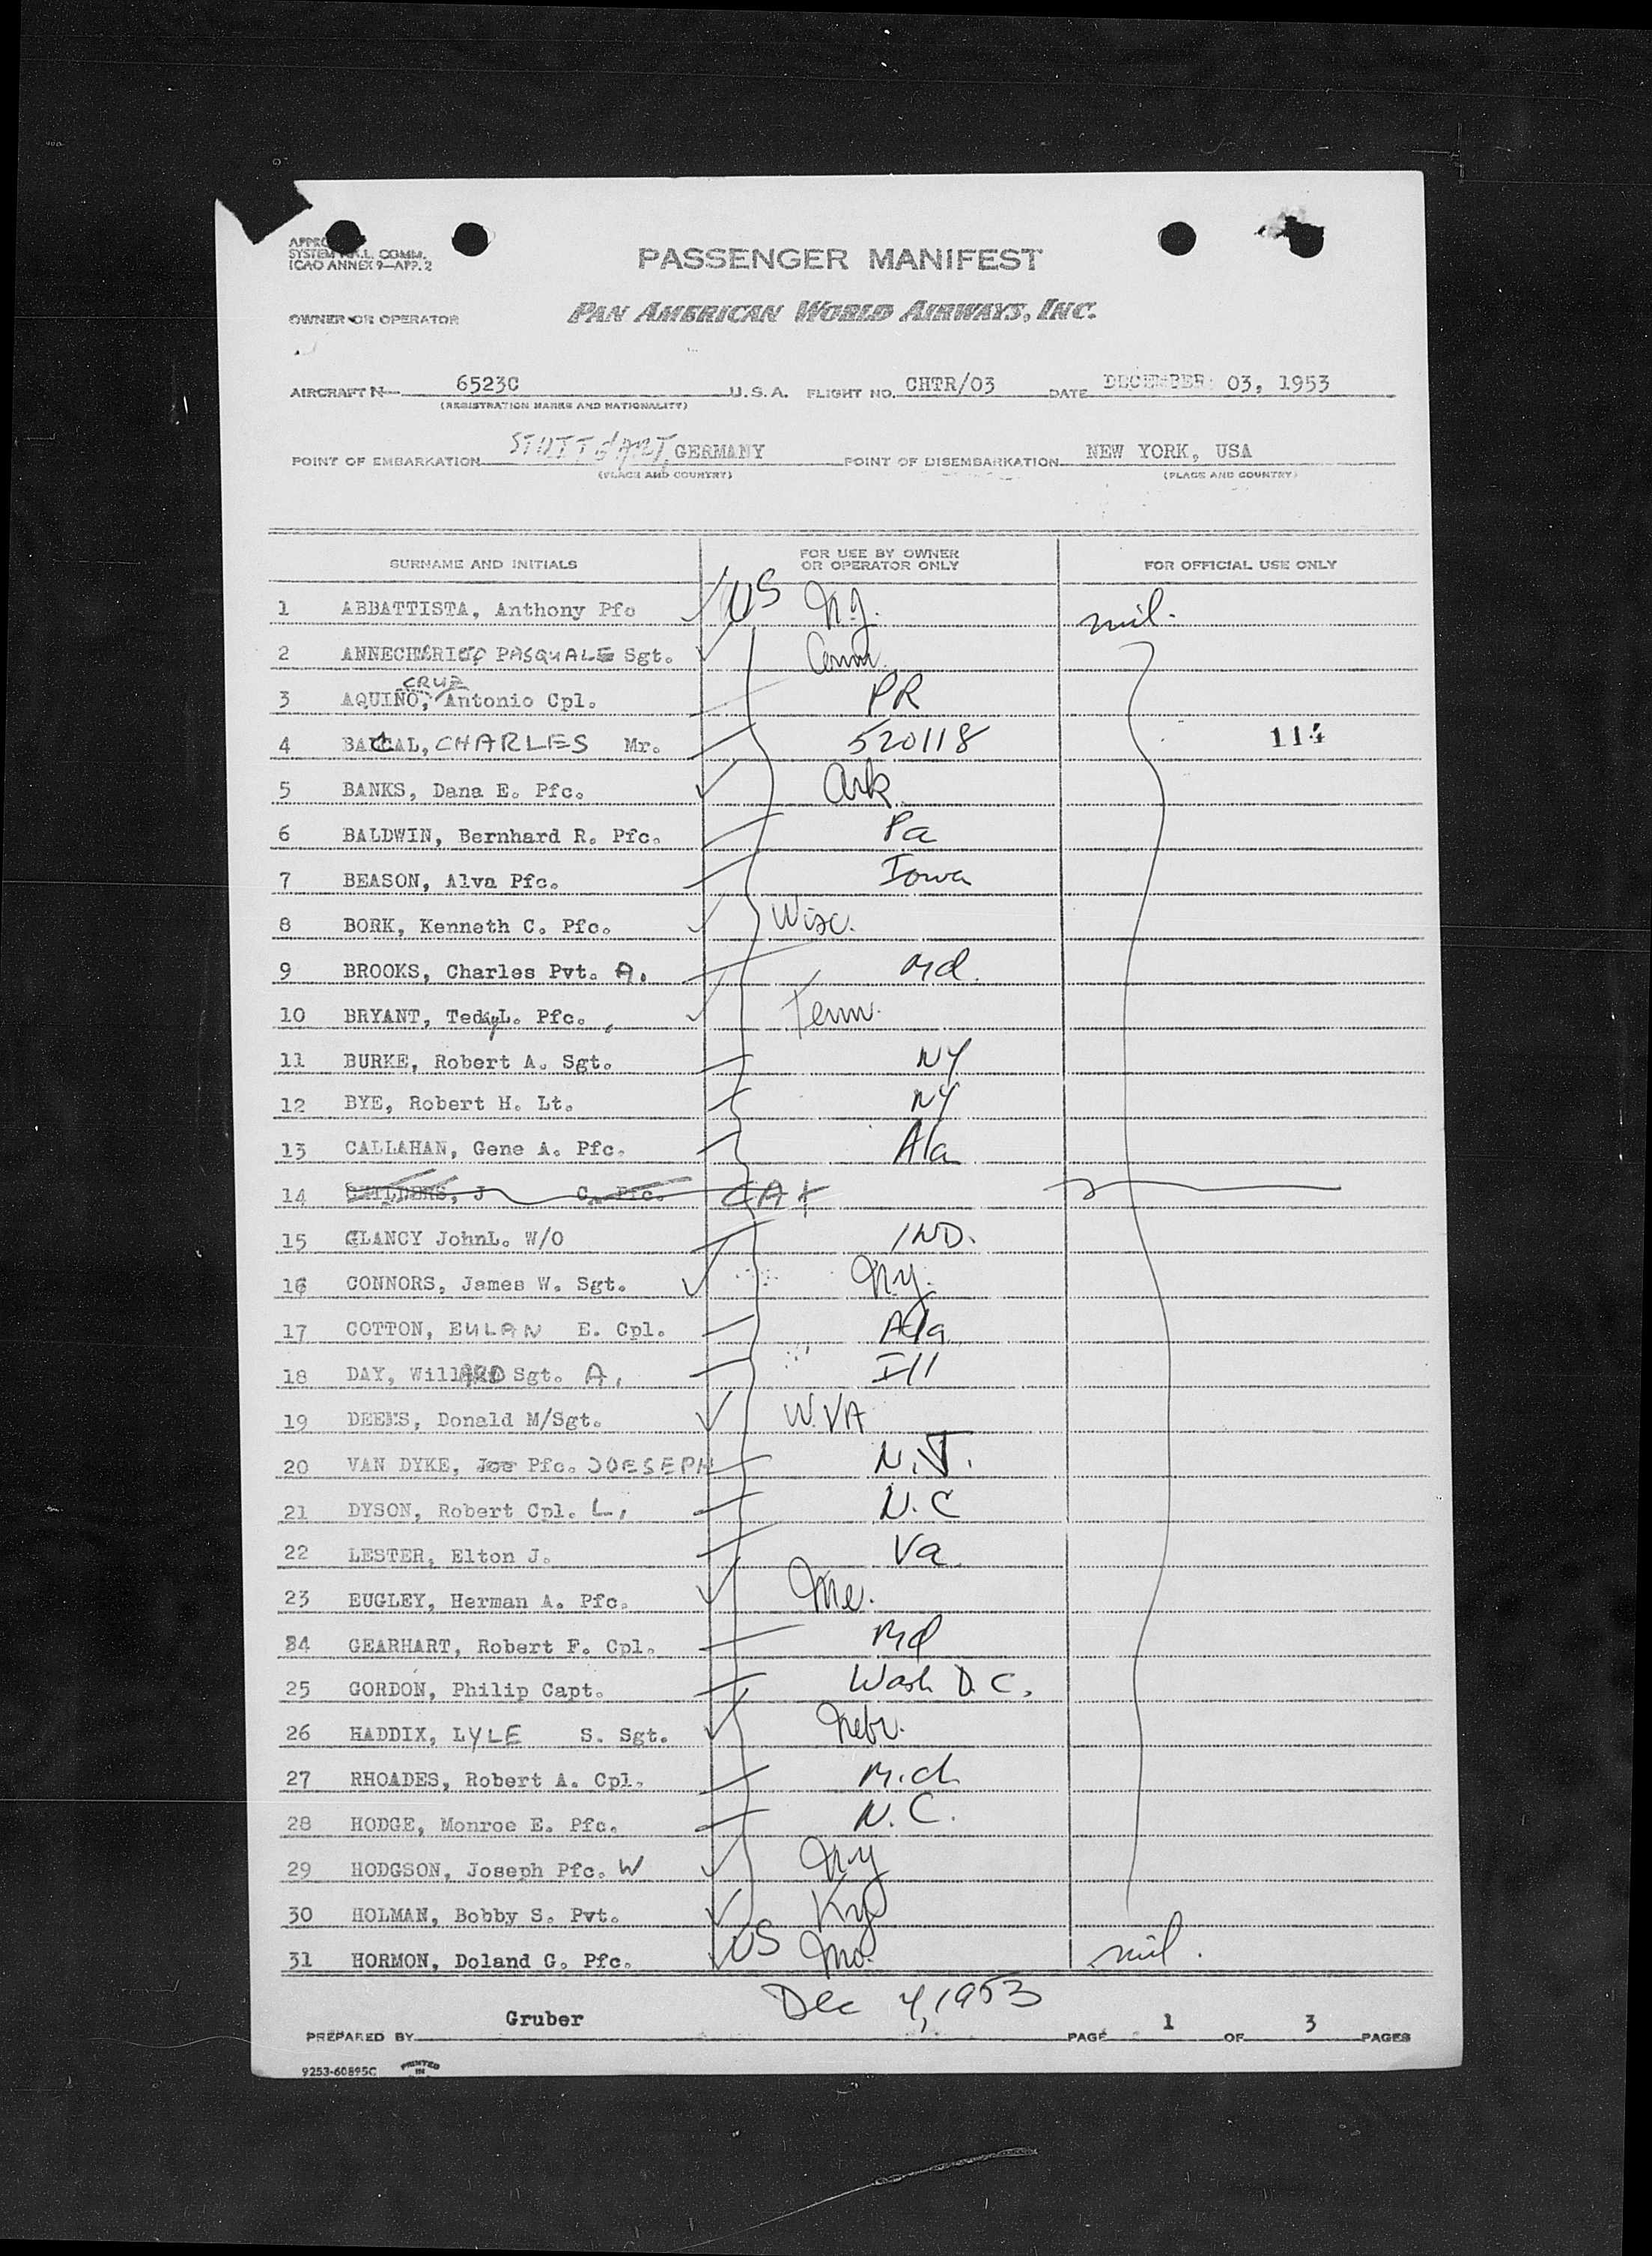 PASSENGER MANIFEST
SYSTEM COMM.
ICAO ANNEX 9—APP. 2
OWNER OR OPERATOR PAN AMERICAN WORLD AIRWAYS, INC.
AIRCRAFT N 6523C U.S.A. FLIGHT NO. CHTR/03 DATE DECEMBER 03, 1953
(REGISTRATION MARKS AND NATIONALITY)
POINT OF EMBARKATION STUTTGART, GERMANY POINT OF DISEMBARKATION NEW YORK, USA
(PLACE AND COUNTRY) (PLACE AND COUNTRY)
SURNAME AND INITIALS FOR USE BY OWNER OR OPERATOR ONLY FOR OFFICIAL USE ONLY
1 ABBATTISTA, Anthony Pfc US N.J. mil.
2 PASQUALE Sgt. Conn.
3 AQUINO, CRUZ Antonio Cpl. PR
4 CHARLES Mr. 520118 114
5 BANKS, Dana E. Pfc. Ark.
6 BALDWIN, Bernhard R. Pfc. Pa
7 BEASON, Alva Pfc. Iowa
8 BORK, Kenneth C. Pfc. Wisc.
9 BROOKS, Charles Pvt. A. Md.
10 BRYANT, Teddy L. Pfc. Tenn.
11 BURKE, Robert A. Sgt. NY
12 BYE, Robert H. Lt. NY
13 CALLAHAN, Gene A. Pfc. Ala
14 CHILDERS, J C. Pfc.
15 GLANCY JohnL. W/O IND.
16 CONNORS, James W. Sgt. N.Y.
17 COTTON, EULAN E. Cpl. Ala
18 DAY, WillARD Sgt. A. Ill
19 DEEMS, Donald M/Sgt. W.VA
20 VAN DYKE, Joe Pfc. JOESEPH N.J.
21 DYSON, Robert Cpl. L. N.C
22 LESTER, Elton J. Va.
23 EUGLEY, Herman A. Pfc. Me.
24 GEARHART, Robert F. Cpl. Md
25 GORDON, Philip Capt. Wash D.C.
26 HADDIX, LYLE S. Sgt. Nebr.
27 RHOADES, Robert A. Cpl. Mich
28 HODGE, Monroe E. Pfc. N.C.
29 HODGSON, Joseph Pfc. W N.Y
30 HOLMAN, Bobby S. Pvt. Ky
31 HORMON, Doland G. Pfc. US Mo. mil.
Dec 4, 1953
PREPARED BY Gruber PAGE 1 OF 3 PAGES
9253-60895C PRINTED IN